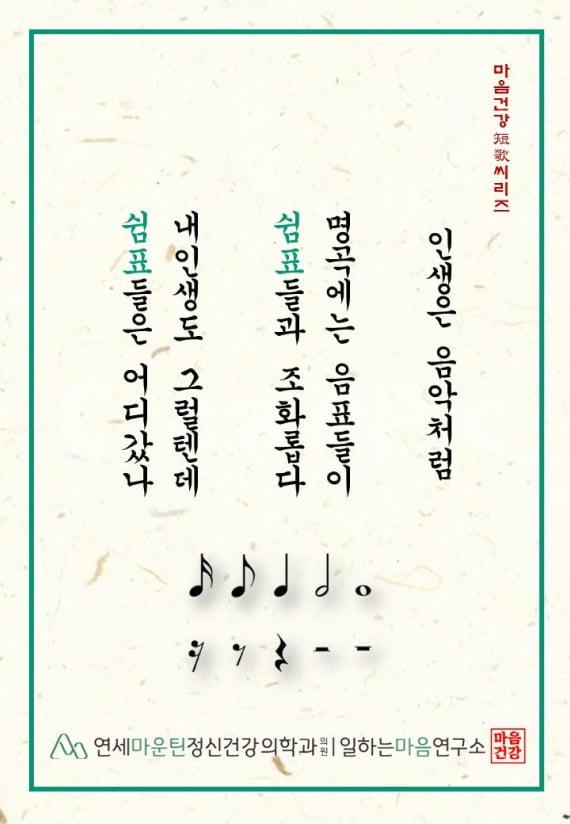 마음건강 短歌 씨리즈
인생은 음악처럼
명곡에는 음표들이
쉼표들과 조화롭다
내인생도 그럴텐데
쉼표들은 어디갔나
연세마운틴정신건강의학과의원 | 일하는마음연구소
마음
건강